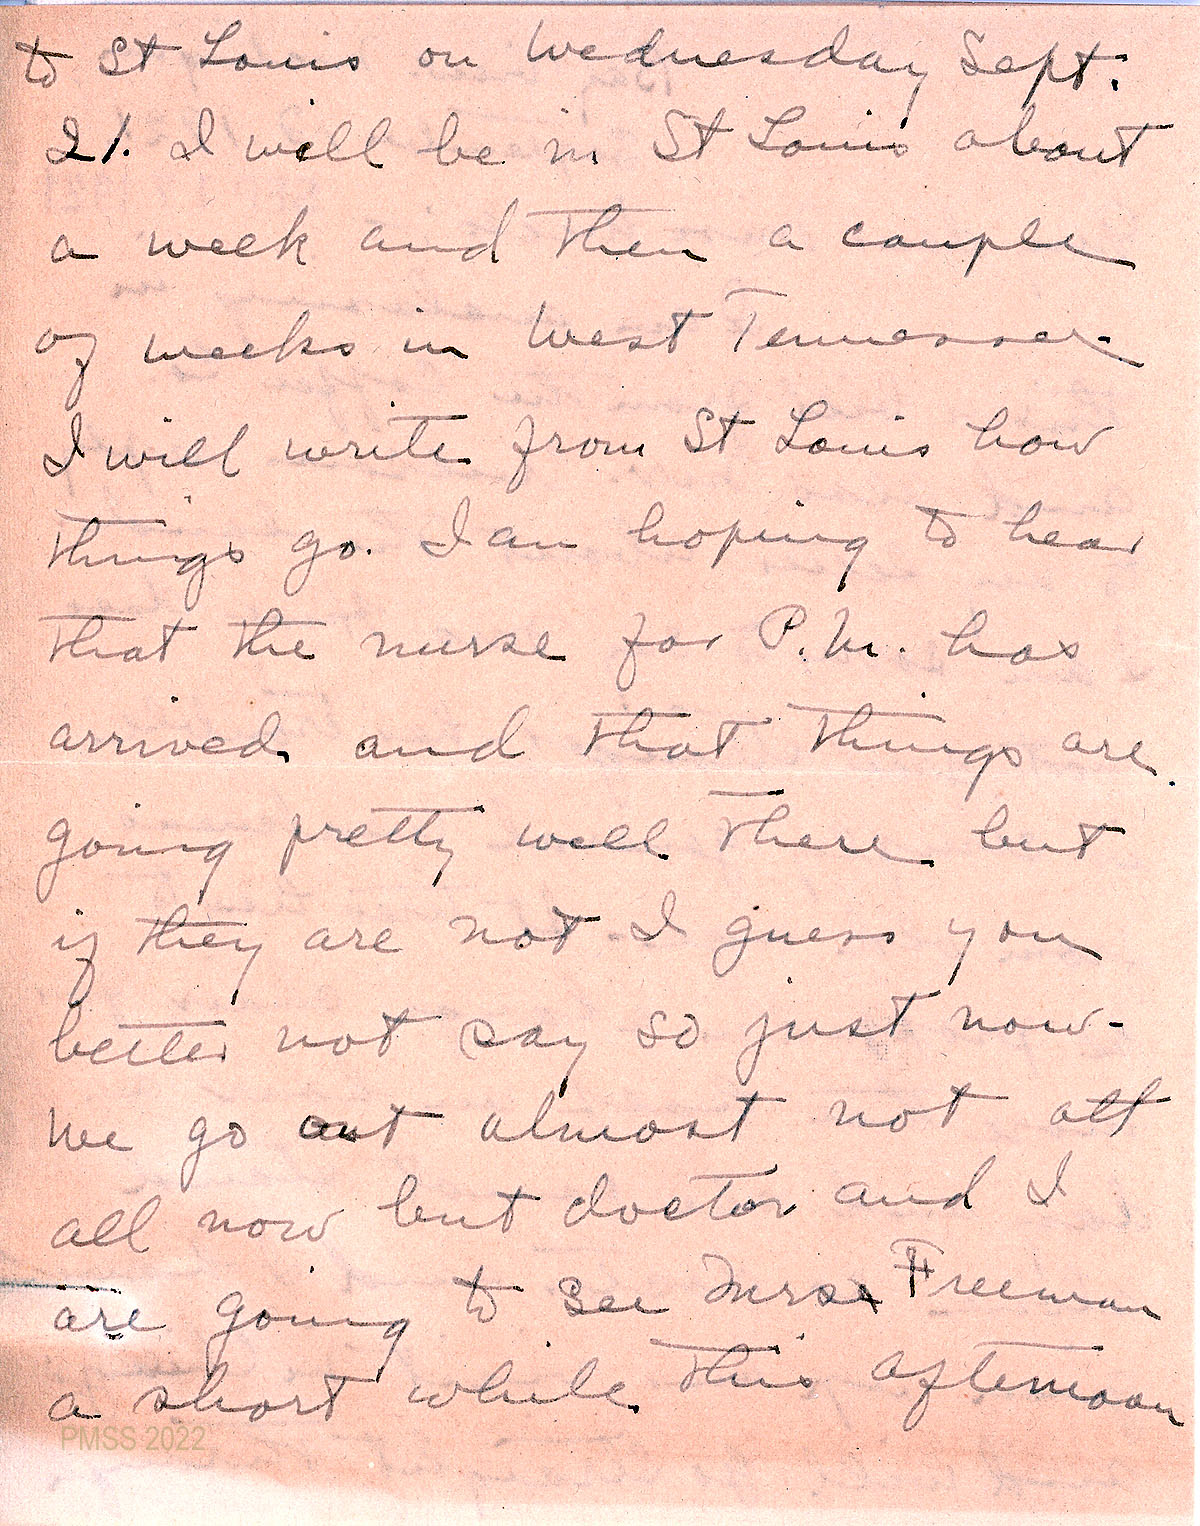 to St Louis on Wednesday Sept.
21. I will be in St Louis about
a week and then a couple
of weeks in West Tennessee.
I will write from St Louis how
things go. I am hoping to hear
that the nurse for P.M. has
arrived and that things are
going pretty well there but
if they are not I guess you
better not say so just now-
We go out almost not att
all now but doctor and I
are going to see Mrs Freeman
a short while this afternoon
PMSS 2022